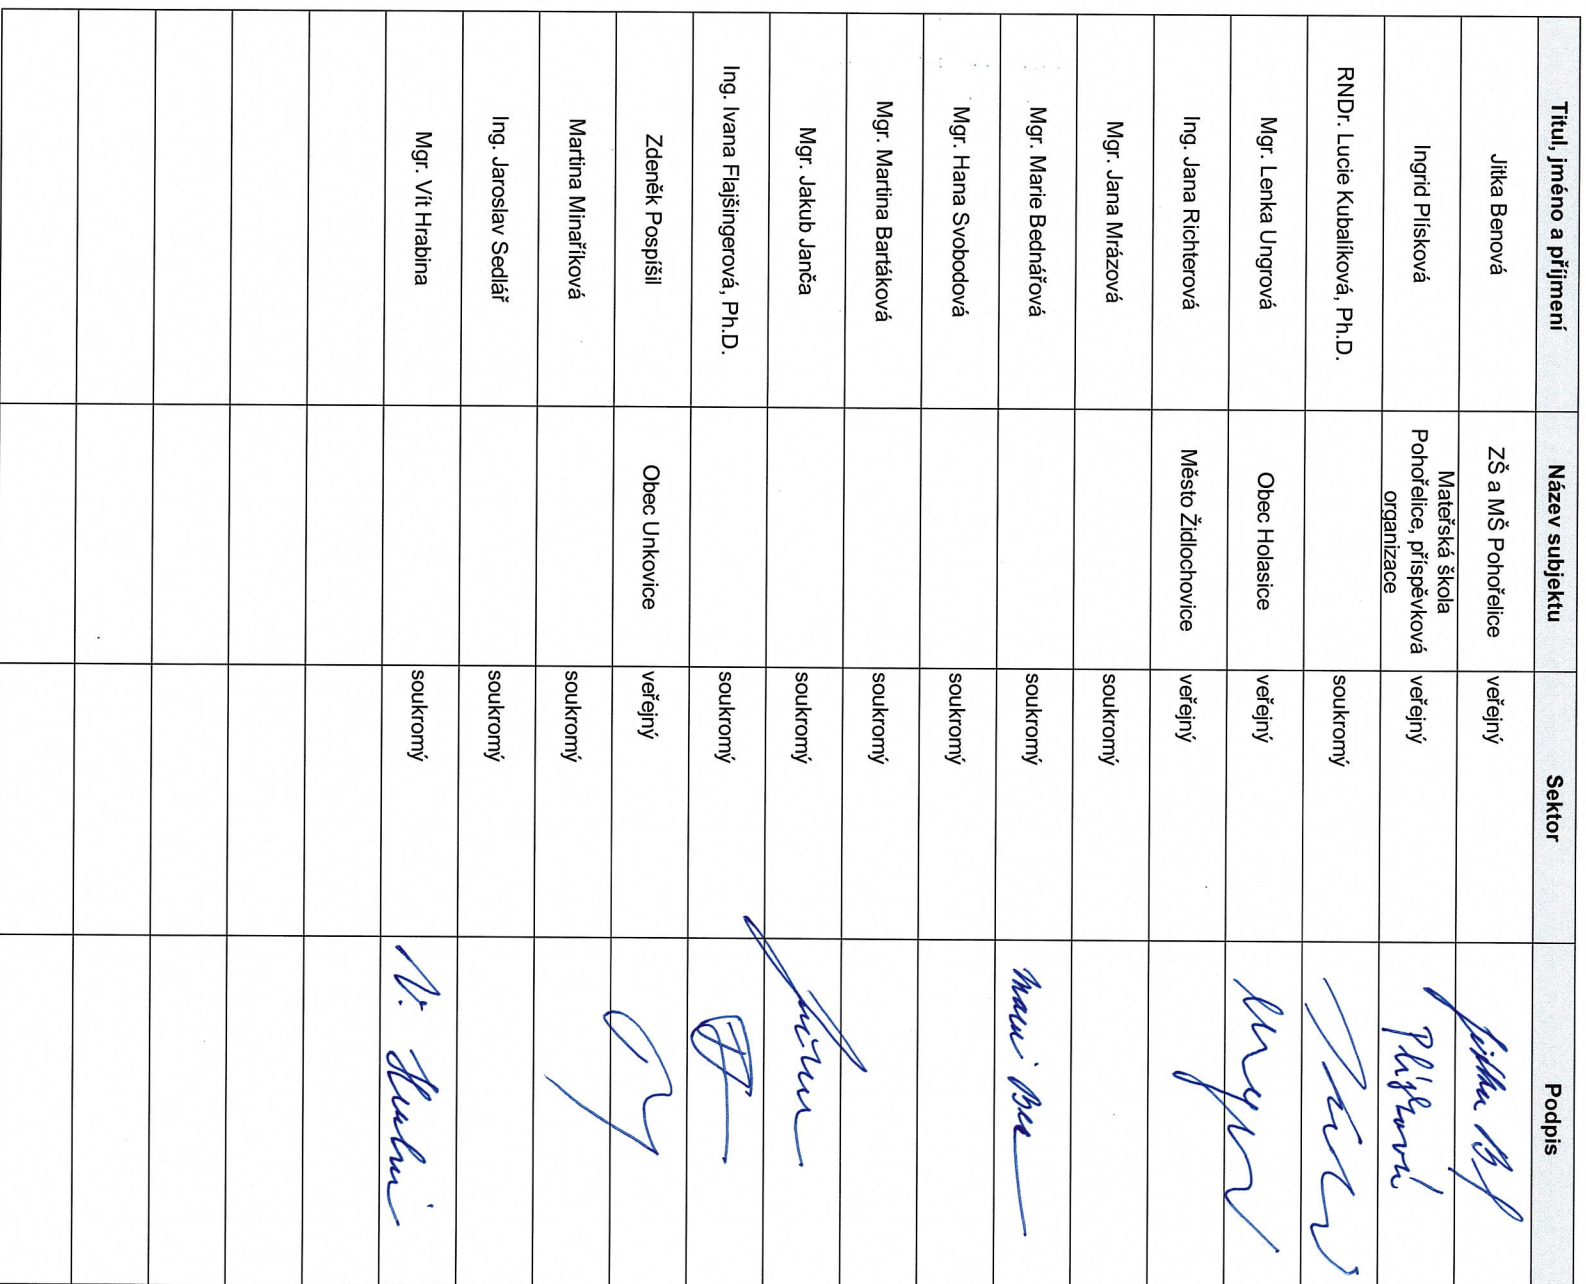 Titul, jméno a příjmení Název subjektu Sektor Podpis
Jitka Benová ZŠ a MŠ Pohořelice veřejný
Ingrid Plísková Mateřská škola
Pohořelice, příspěvková
organizace veřejný Plísková
RNDr. Lucie Kubalíková, Ph.D. soukromý
Mgr. Lenka Ungrová Obec Holasice veřejný
Ing. Jana Richterová Město Židlochovice veřejný
Mgr. Jana Mrázová soukromý
Mgr. Marie Bednářová soukromý
Mgr. Hana Svobodová soukromý
Mgr. Martina Bartáková soukromý
Mgr. Jakub Janča soukromý
Ing. Ivana Flajšingerová, Ph.D. soukromý
Zdeněk Pospíšil Obec Unkovice veřejný
Martina Minaříková soukromý
Ing. Jaroslav Sedlář soukromý
Mgr. Vít Hrabina soukromý